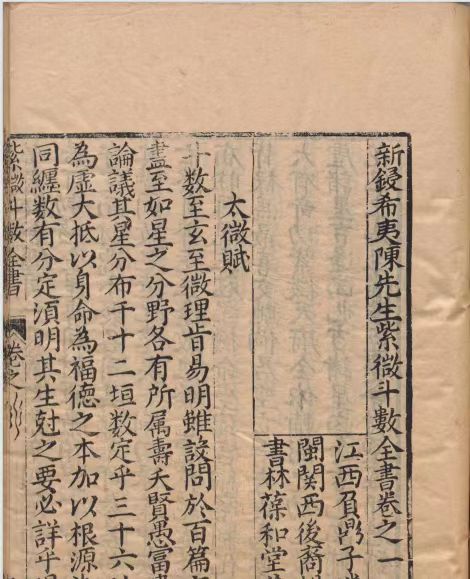 新鋟希夷陳先生紫微斗數全書卷之一
江西負鼎子
閩關西後裔
書林葆和堂
太微賦
斗數至玄至微理旨易明雖設問於百篇
盡至如星之分野各有所属壽夭賢愚富
論議其星分布于十二垣數定乎三十六
為虛大抵以身命為福德之本加以根源
同纏數有分定須明其生尅之要必詳乎
紫微斗數全書
卷之